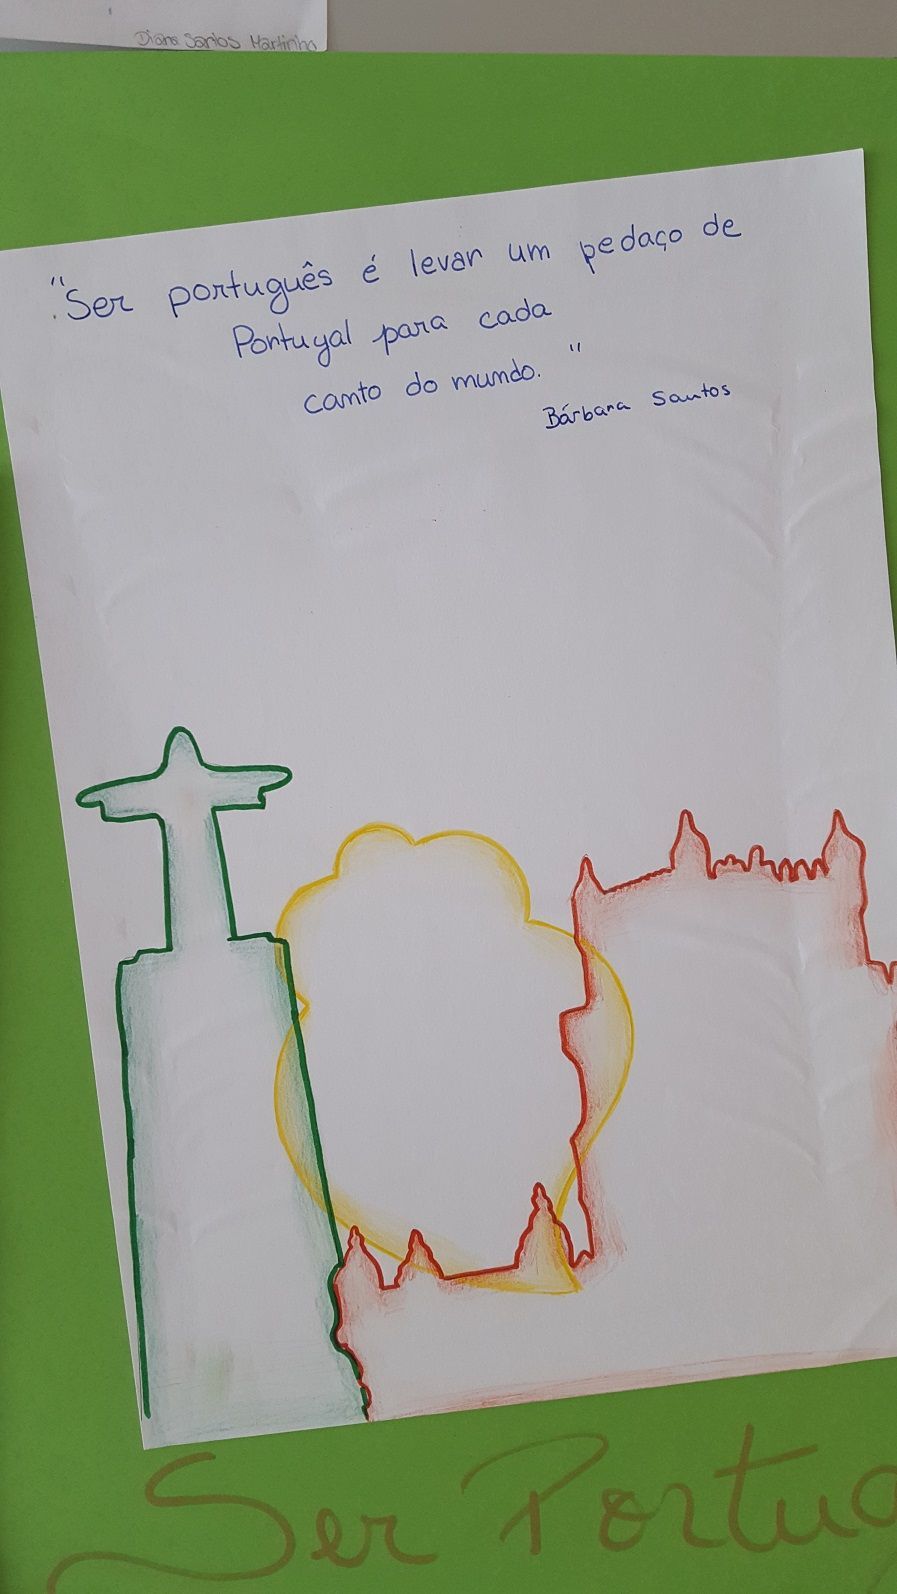 Diana Santos Martinho
"Ser português é levar um pedaço de
Portugal para cada
canto do mundo."
Bárbara Santos
Ser Portug